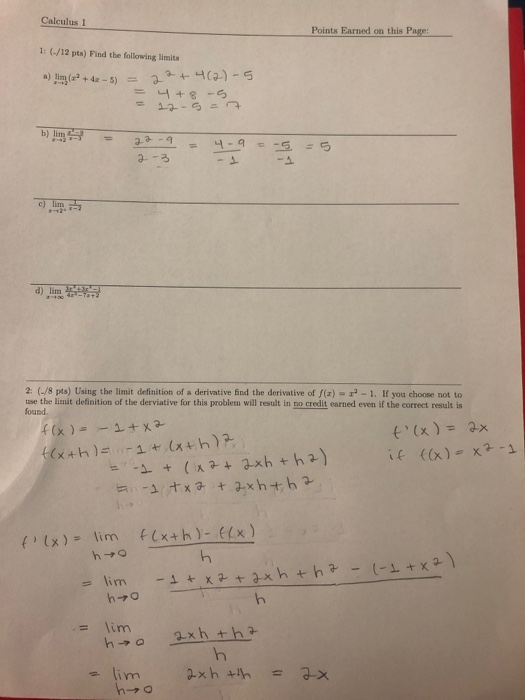 Calculus 1
Points Earned on this Page:
1: (-/12 pts) Find the following limits
a) lim x→2 (x² + 4x − 5) = 2² + 4(2) - 5
= 4 + 8 - 5
= 12 - 5 = 7
b) lim x→2 = (2² - 9)/(2 - 3) = (4 - 9)/(-1) = (-5)/(-1) = 5
c) lim x→2⁺ 1/(x−2)
d) lim x→∞
2: (-/8 pts) Using the limit definition of a derivative find the derivative of f(x) = x² − 1. If you choose not to
use the limit definition of the derviative for this problem will result in no credit earned even if the correct result is
found.
f(x) = -1 + x²
f'(x) = 2x
f(x+h) = -1 + (x+h)²
if f(x) = x² - 1
= -1 + (x² + 2xh + h²)
= -1 + x² + 2xh + h²
f'(x) = lim h→0 (f(x+h) - f(x))/h
= lim h→0 (-1 + x² + 2xh + h² - (-1 + x²))/h
= lim h→0 (2xh + h²)/h
= lim h→0 2xh + h = 2x